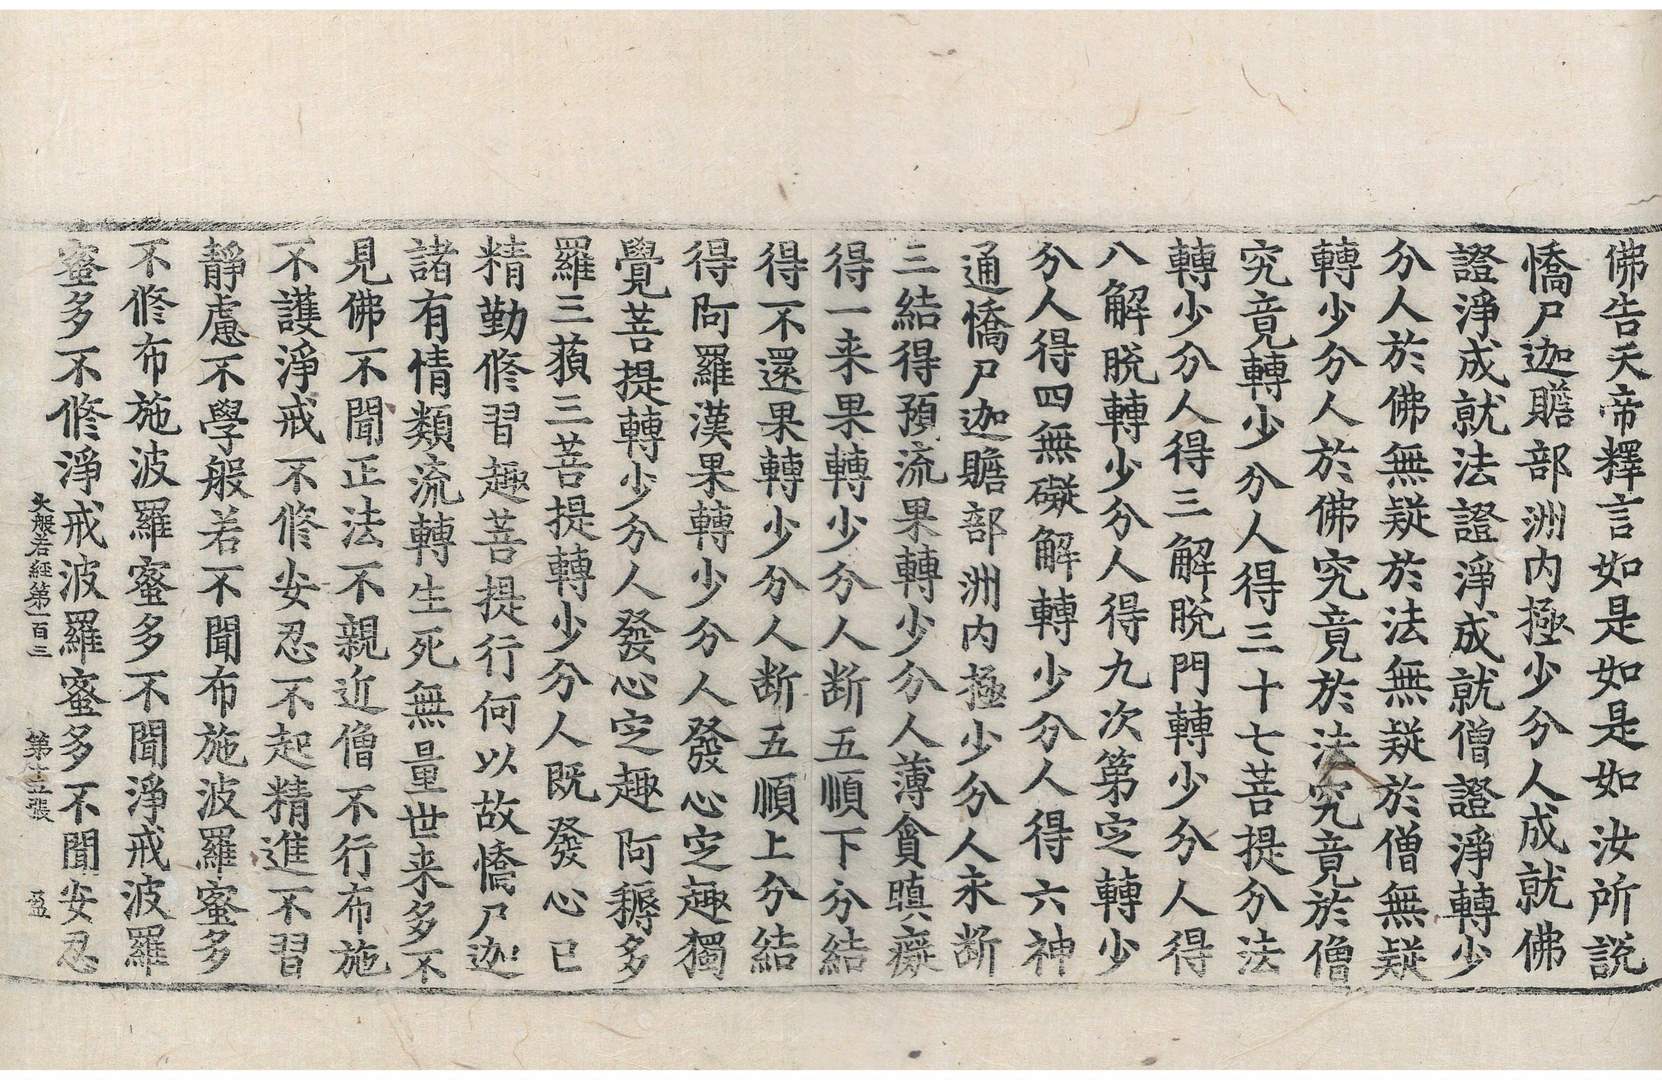 佛告天帝釋言如是如是如汝所説
憍尸迦贍部洲内極少分人成就佛
證淨成就法證淨成就僧證淨轉少
分人於佛無疑於法無疑於僧無疑
轉少分人於佛究竟於法究竟於僧
究竟轉少分人得三十七菩提分法
轉少分人得三解脱門轉少分人得
八解脱轉少分人得九次第定轉少
分人得四無礙解轉少分人得六神
通憍尸迦贍部洲内極少分人永断
三結得預流果轉少分人薄貪瞋癡
得一来果轉少分人断五順下分結
得不還果轉少分人断五順上分結
得阿羅漢果轉少分人發心定趣獨
覺菩提轉少分人發心定趣阿耨多
羅三藐三菩提轉少分人既發心已
精勤修習趣菩提行何以故憍尸迦
諸有情類流轉生死無量世来多不
見佛不聞正法不親近僧不行布施
不護淨戒不修安忍不起精進不習
靜慮不學般若不聞布施波羅蜜多
不修布施波羅蜜多不聞淨戒波羅
蜜多不修淨戒波羅蜜多不聞安忍
大般若經第一百三 第十五張 盈